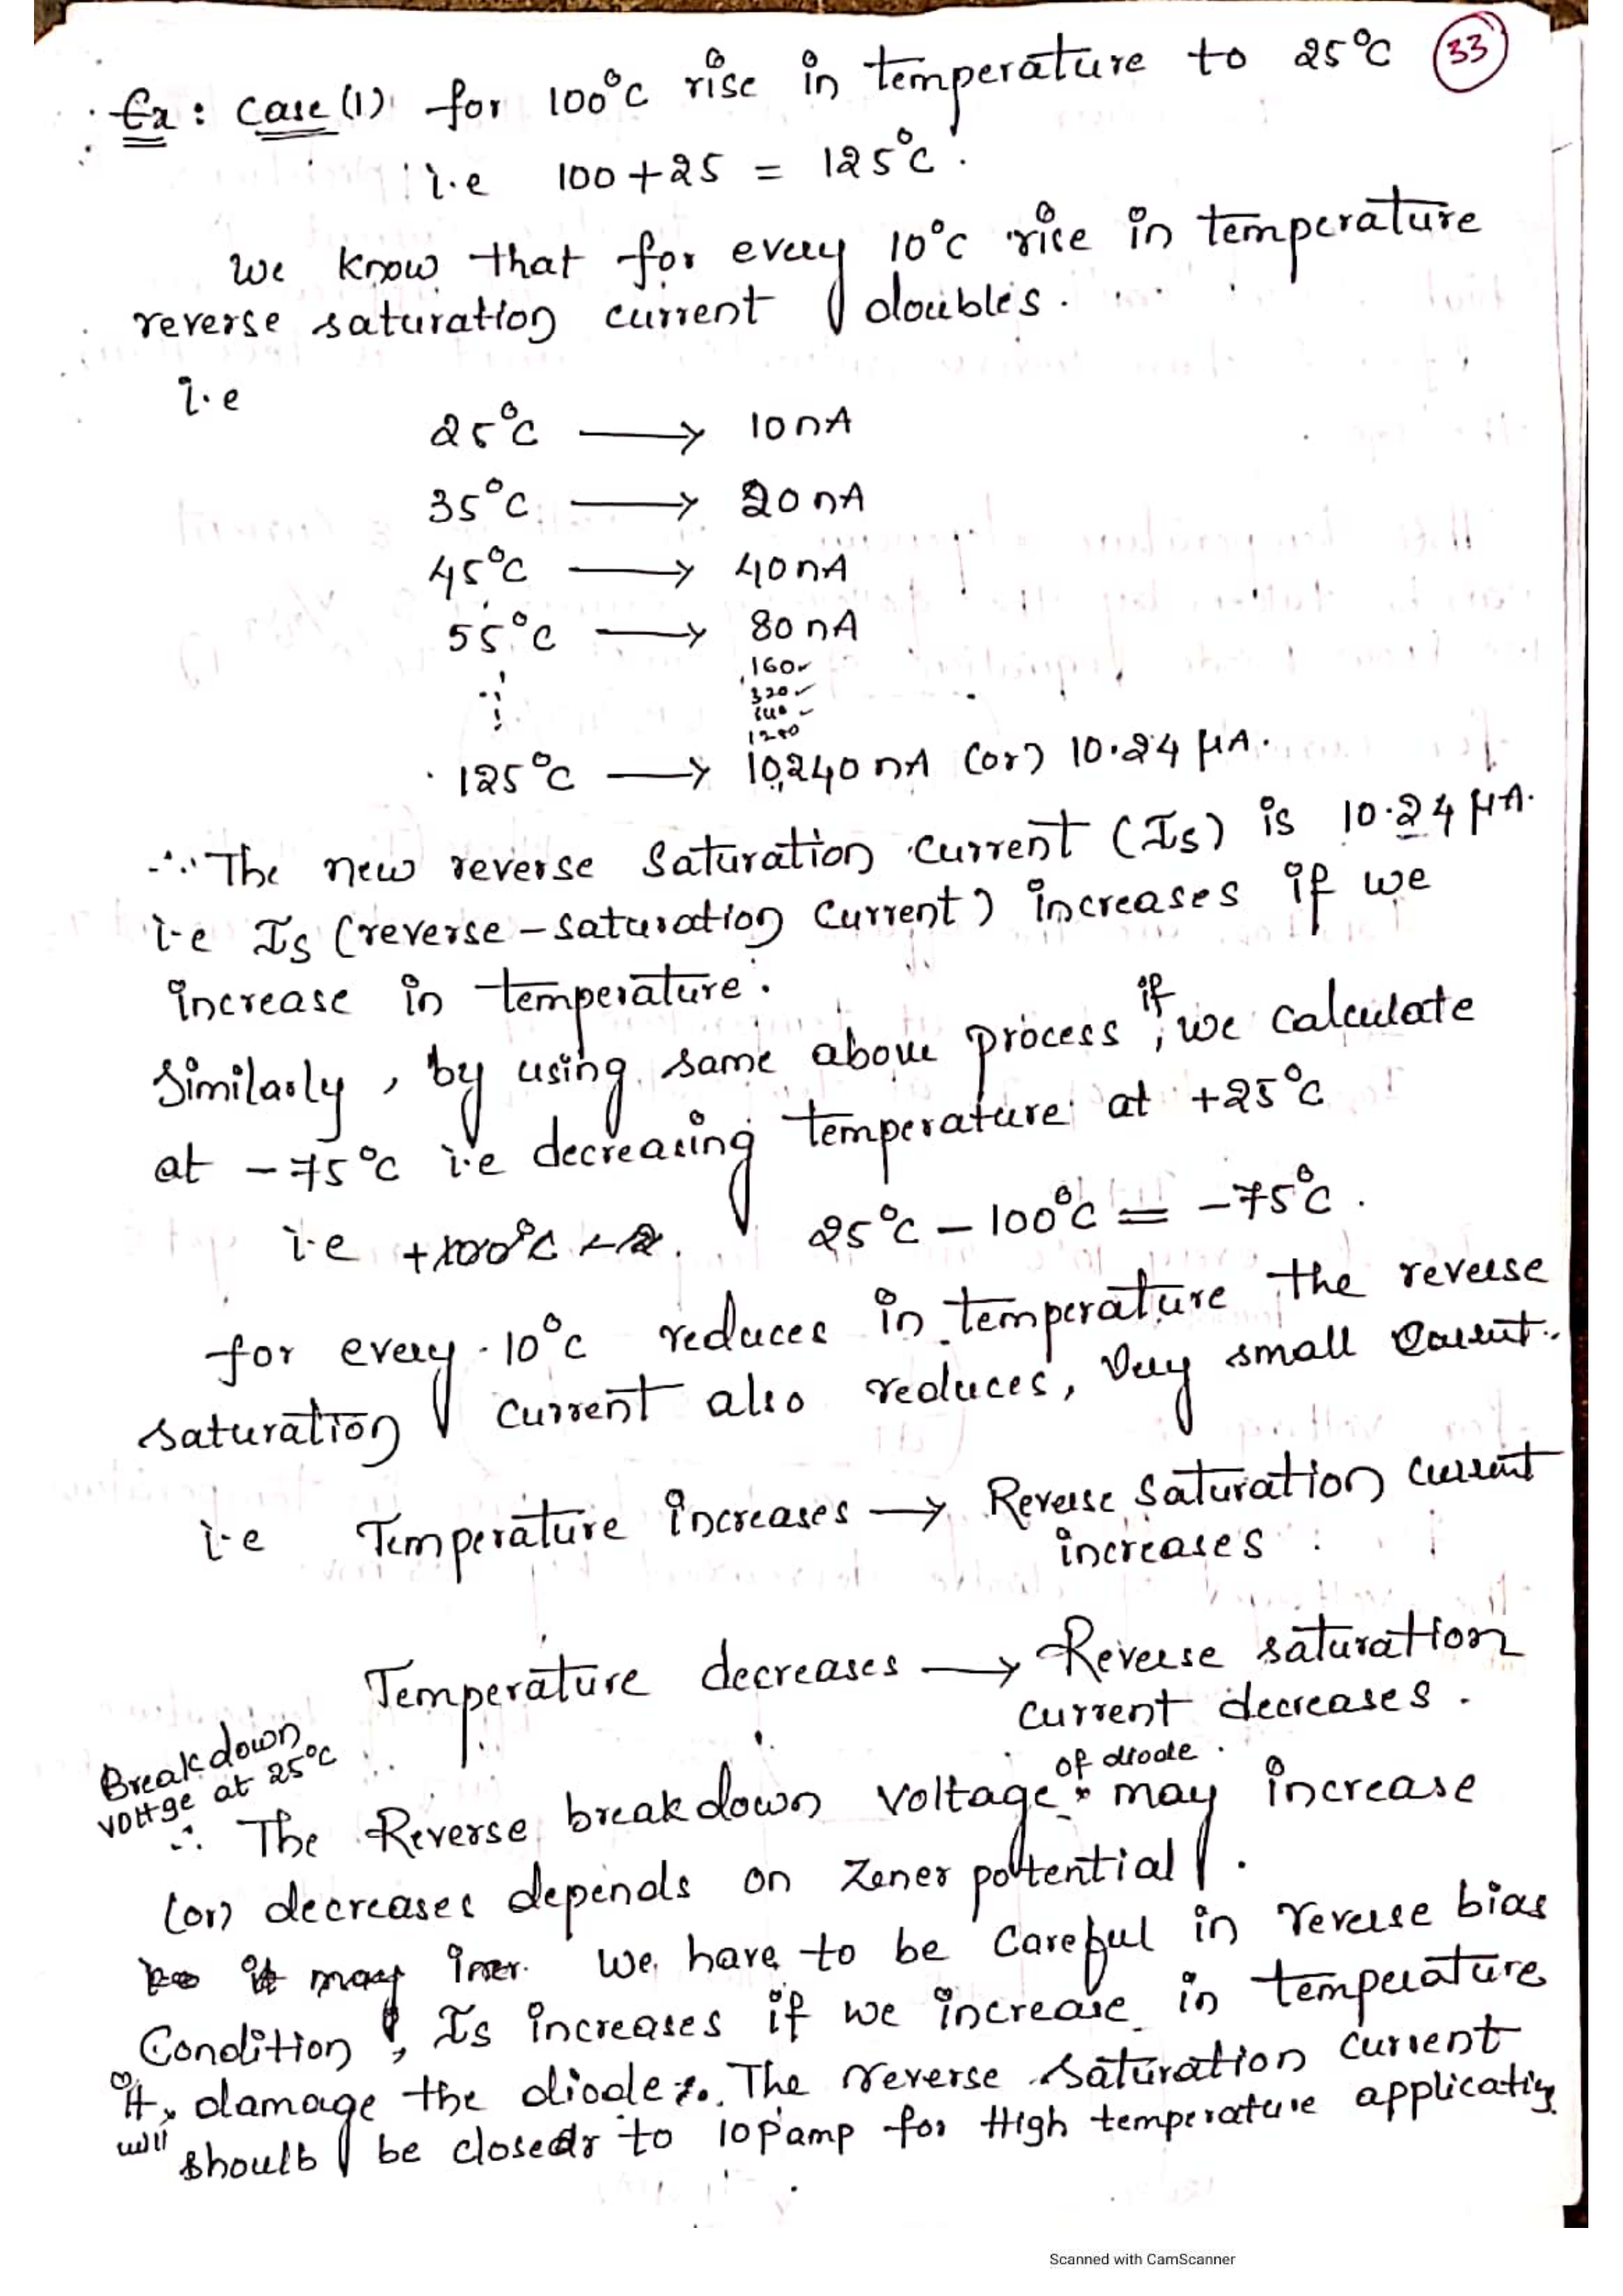 33
Ex : Case (1) for 100°C rise in temperature to 25°C
i.e 100+25 = 125°C.
We know that for every 10°C rise in temperature
reverse saturation current doubles.
i.e
25°C → 10nA
35°C → 20nA
45°C → 40nA
55°C → 80nA
160
320
640
1280
125°C → 10,240nA (or) 10.24 μA.
∴ The new reverse saturation current (Is) is 10.24 μA.
i.e Is (reverse-saturation current) increases if we
increase in temperature.
Similarly, by using same above process, if we calculate
at -75°C i.e decreasing temperature at +25°C
i.e 25°C - 100°C = -75°C.
for every 10°C reduces in temperature the reverse
saturation current also reduces, very small current.
i.e Temperature increases → Reverse saturation current
increases
Temperature decreases → Reverse saturation
current decreases.
Breakdown
voltge at 25°C
∴ The Reverse breakdown voltage of diode may increase
(or) decreases depends on Zener potential.
it may incr. We have to be careful in reverse bias
Condition, Is increases if we increase in temperature
it will damage the diode. The reverse saturation current
shoulb be closedr to 10Pamp for High temperature applicatiη
Scanned with CamScanner